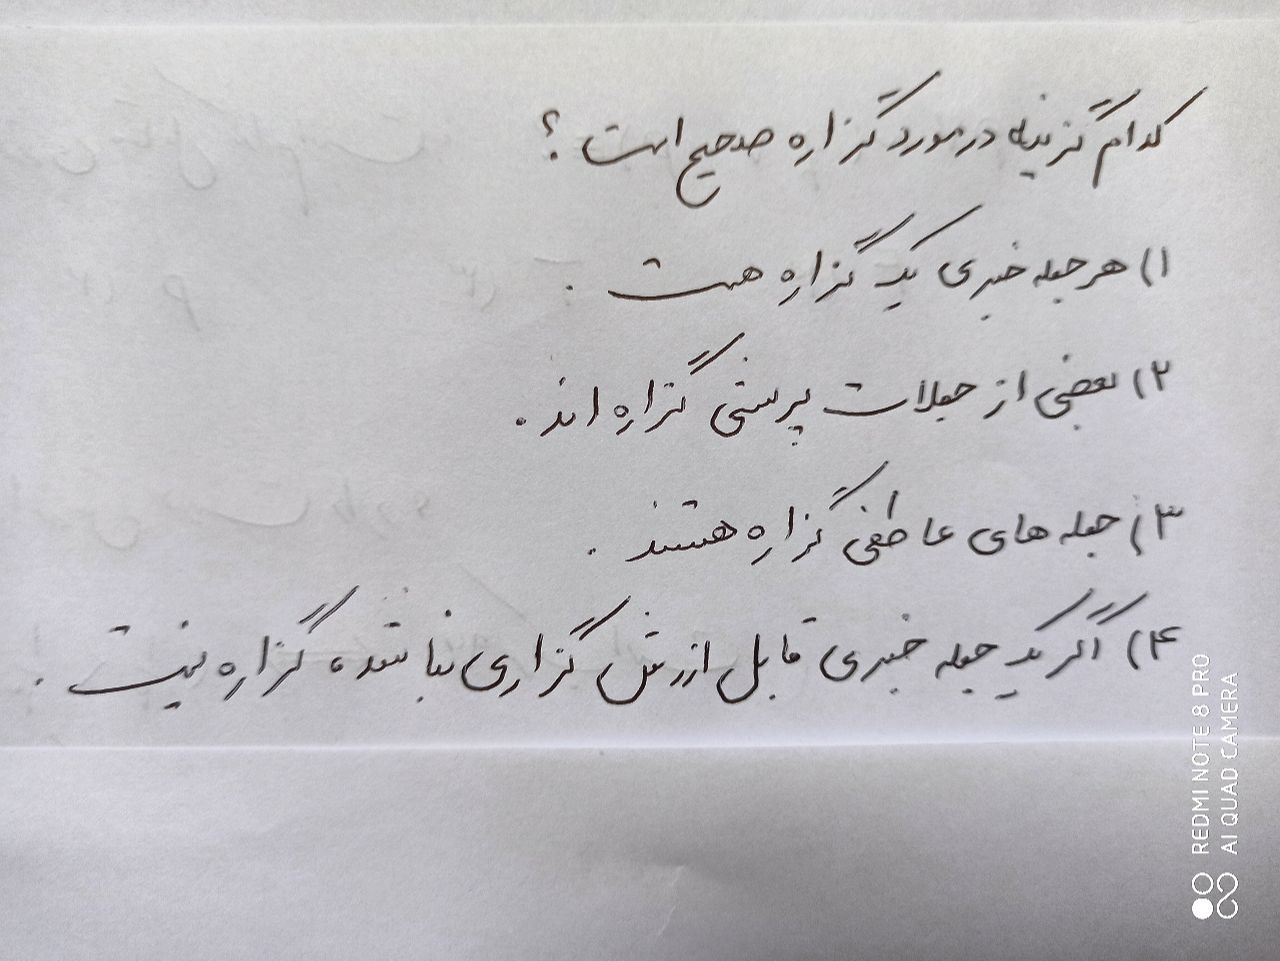 کدام گزینه در مورد گزاره صحیح است؟
۱) هر جمله خبری یک گزاره هست.
۲) بعضی از جملات پرسشی گزاره اند.
۳) جمله های عاطفی گزاره هستند.
۴) اگر یک جمله خبری قابل ارزش گزاری نباشد، گزاره نیست.
REDMI NOTE 8 PRO
AI QUAD CAMERA